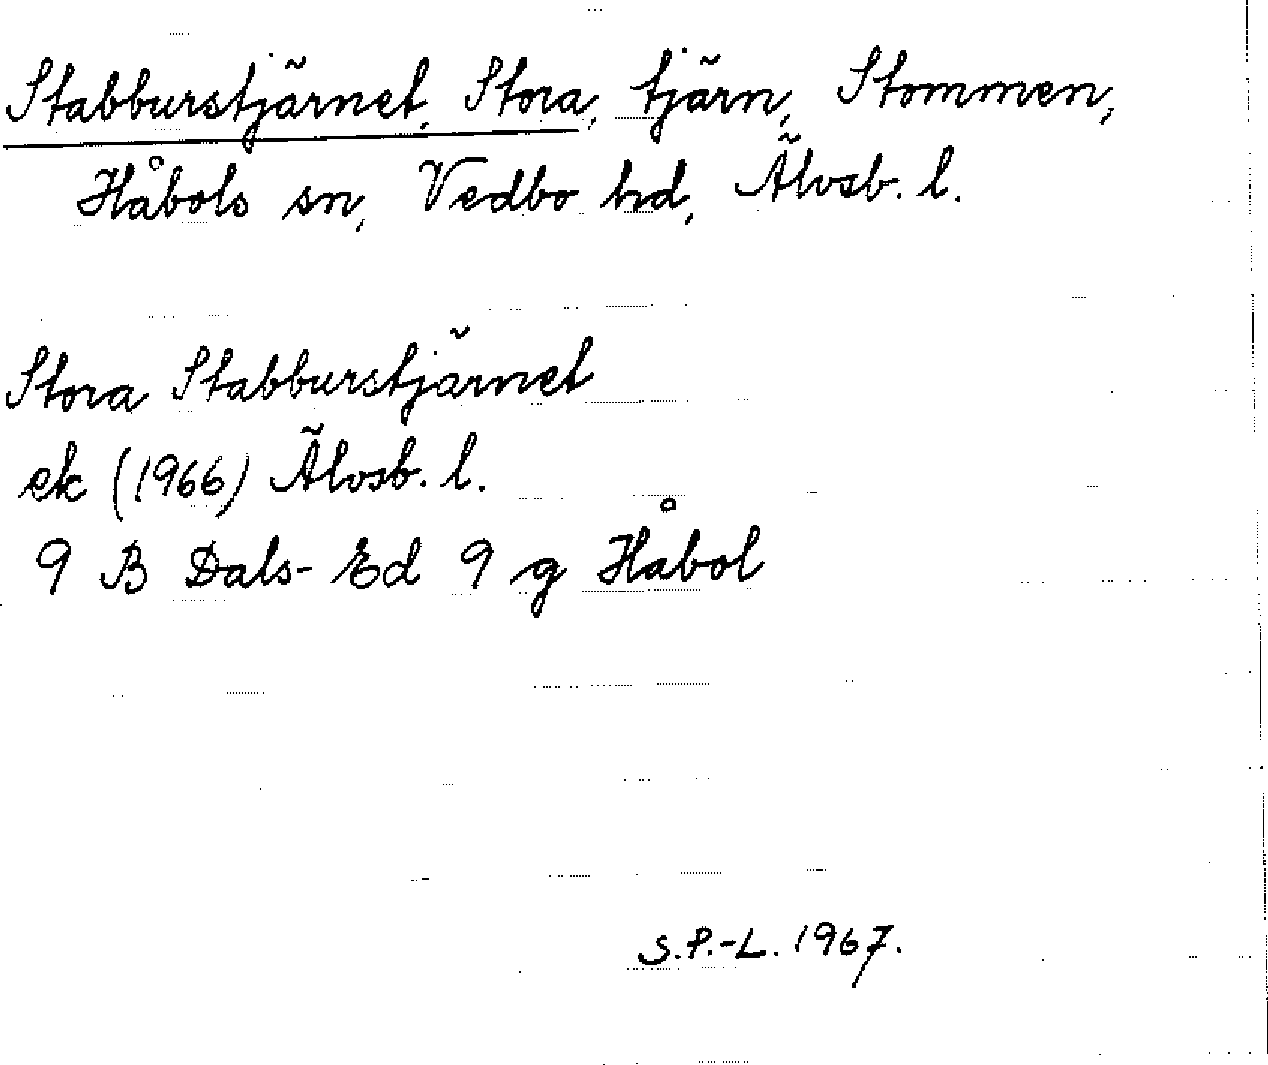 Stabburstjärnet, Stora, tjärn, Stommen,
Håbols sn, Vedbo hd, Älvsb. l.
Stora Stabburstjärnet
ek (1966) Älvsb. l.
9 B Dals-Ed 9 g Håbol
S.P.-L. 1967.